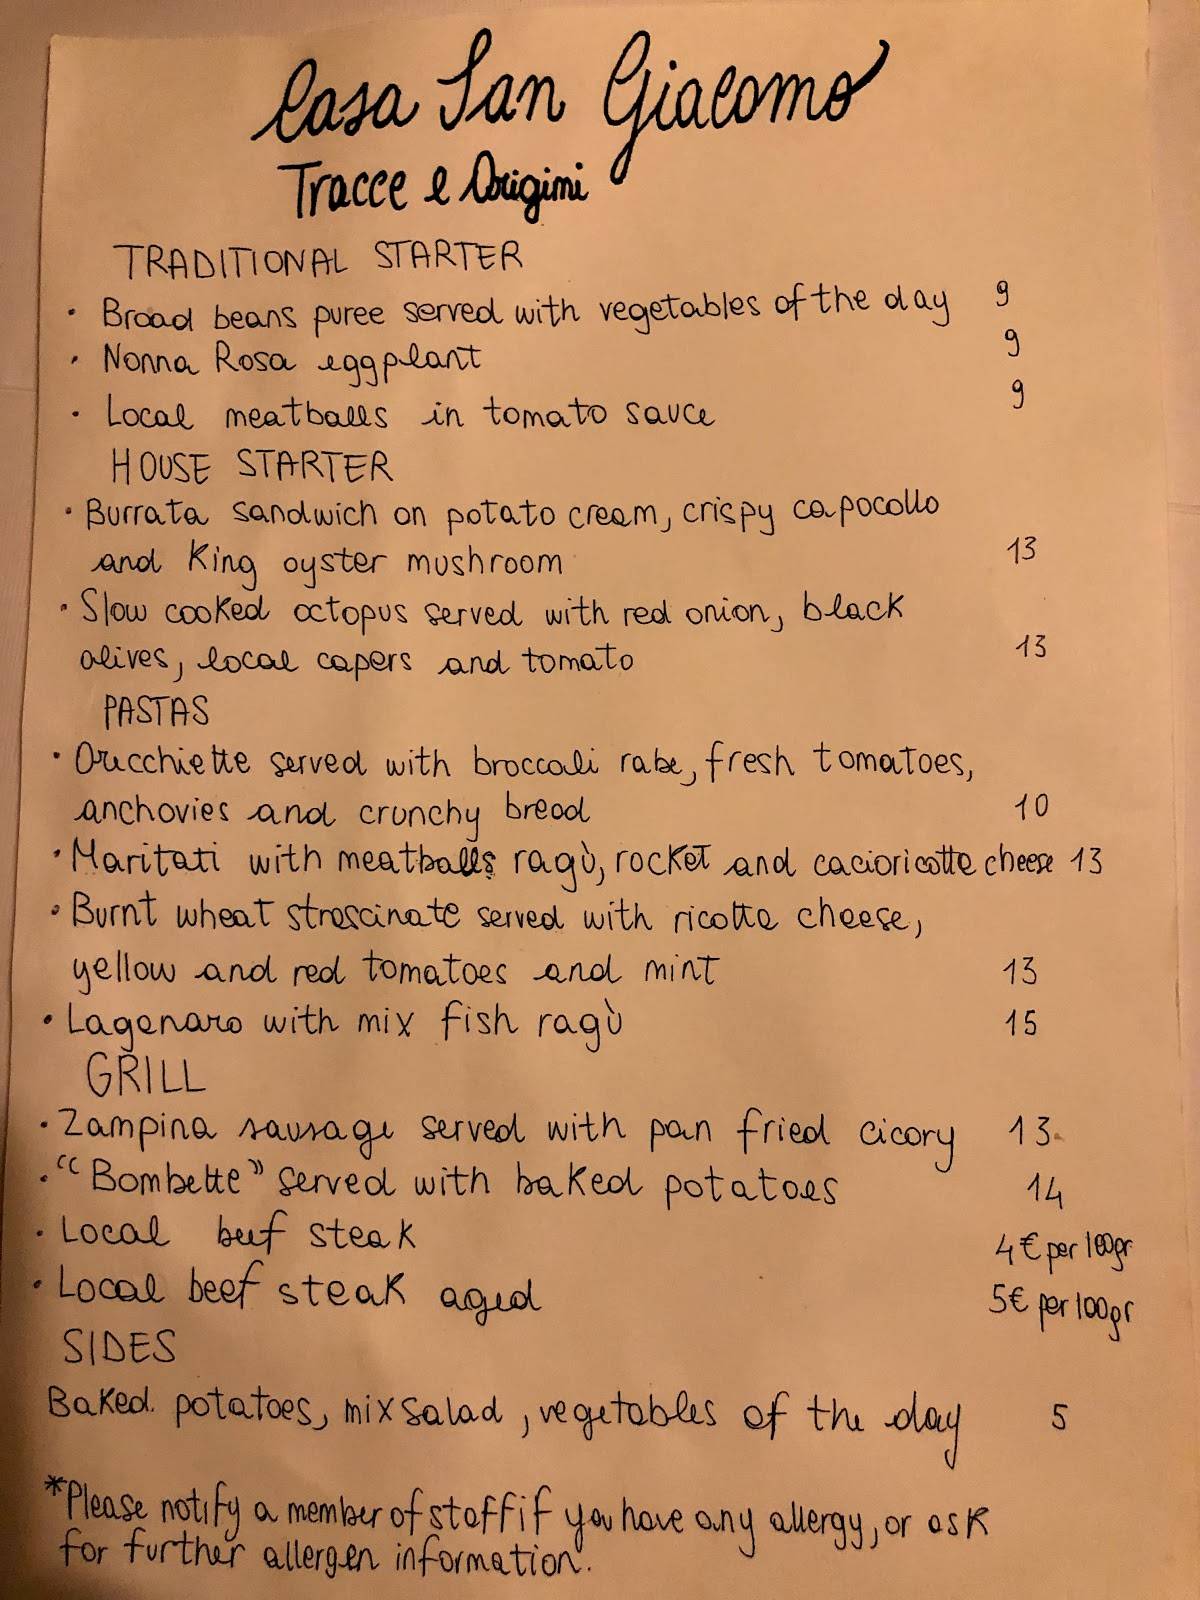 Casa San Giacomo
Tracce e Origini
TRADITIONAL STARTER
• Broad beans puree served with vegetables of the day 9
• Nonna Rosa eggplant 9
• Local meatballs in tomato sauce 9
HOUSE STARTER
• Burrata sandwich on potato cream, crispy capocollo
and King oyster mushroom 13
• Slow cooked octopus served with red onion, black
olives, local capers and tomato 13
PASTAS
• Orecchiette served with broccoli rabe, fresh tomatoes,
anchovies and crunchy bread 10
• Maritati with meatballs ragù, rocket and cacioricotta cheese 13
• Burnt wheat strascinate served with ricotta cheese,
yellow and red tomatoes and mint 13
• Lagenaro with mix fish ragù 15
GRILL
• Zampina sausage served with pan fried cicory 13
• "Bombette" served with baked potatoes 14
• Local beef steak 4€ per 100gr
• Local beef steak aged 5€ per 100gr
SIDES
Baked potatoes, mix salad, vegetables of the day 5
*Please notify a member of staff if you have any allergy, or ask
for further allergen information.